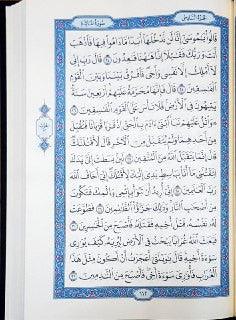 الجزء السادس سورة المائدة
قَالُوا۟ يَـٰمُوسَىٰٓ إِنَّا لَن نَّدْخُلَهَآ أَبَدًا مَّا دَامُوا۟ فِيهَا فَٱذْهَبْ
أَنتَ وَرَبُّكَ فَقَـٰتِلَآ إِنَّا هَـٰهُنَا قَـٰعِدُونَ ٢٤ قَالَ رَبِّ إِنِّى
لَآ أَمْلِكُ إِلَّا نَفْسِى وَأَخِى فَٱفْرُقْ بَيْنَنَا وَبَيْنَ ٱلْقَوْمِ
ٱلْفَـٰسِقِينَ ٢٥ قَالَ فَإِنَّهَا مُحَرَّمَةٌ عَلَيْهِمْ أَرْبَعِينَ سَنَةً
يَتِيهُونَ فِى ٱلْأَرْضِ فَلَا تَأْسَ عَلَى ٱلْقَوْمِ ٱلْفَـٰسِقِينَ ٢٦
۞ وَٱتْلُ عَلَيْهِمْ نَبَأَ ٱبْنَىْ ءَادَمَ بِٱلْحَقِّ إِذْ قَرَّبَا قُرْبَانًا فَتُقُبِّلَ
مِنْ أَحَدِهِمَا وَلَمْ يُتَقَبَّلْ مِنَ ٱلْـَٔاخَرِ قَالَ لَأَقْتُلَنَّكَ
قَالَ إِنَّمَا يَتَقَبَّلُ ٱللَّهُ مِنَ ٱلْمُتَّقِينَ ٢٧ لَئِنۢ بَسَطتَ إِلَىَّ يَدَكَ
لِتَقْتُلَنِى مَآ أَنَا۠ بِبَاسِطٍ يَدِىَ إِلَيْكَ لِأَقْتُلَكَ إِنِّىٓ أَخَافُ ٱللَّهَ
رَبَّ ٱلْعَـٰلَمِينَ ٢٨ إِنِّىٓ أُرِيدُ أَن تَبُوٓأَ بِإِثْمِى وَإِثْمِكَ فَتَكُونَ
مِنْ أَصْحَـٰبِ ٱلنَّارِ وَذَٰلِكَ جَزَٰٓؤُا۟ ٱلظَّـٰلِمِينَ ٢٩ فَطَوَّعَتْ
لَهُۥ نَفْسُهُۥ قَتْلَ أَخِيهِ فَقَتَلَهُۥ فَأَصْبَحَ مِنَ ٱلْخَـٰسِرِينَ ٣٠
فَبَعَثَ ٱللَّهُ غُرَابًا يَبْحَثُ فِى ٱلْأَرْضِ لِيُرِيَهُۥ كَيْفَ يُوَٰرِى
سَوْءَةَ أَخِيهِ قَالَ يَـٰوَيْلَتَىٰٓ أَعَجَزْتُ أَنْ أَكُونَ مِثْلَ هَـٰذَا
ٱلْغُرَابِ فَأُوَٰرِىَ سَوْءَةَ أَخِى فَأَصْبَحَ مِنَ ٱلنَّـٰدِمِينَ ٣١
١١٢